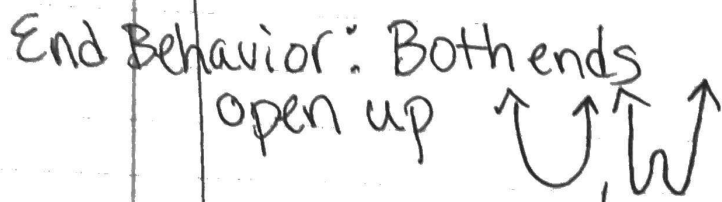 End Behavior: Both ends
open up